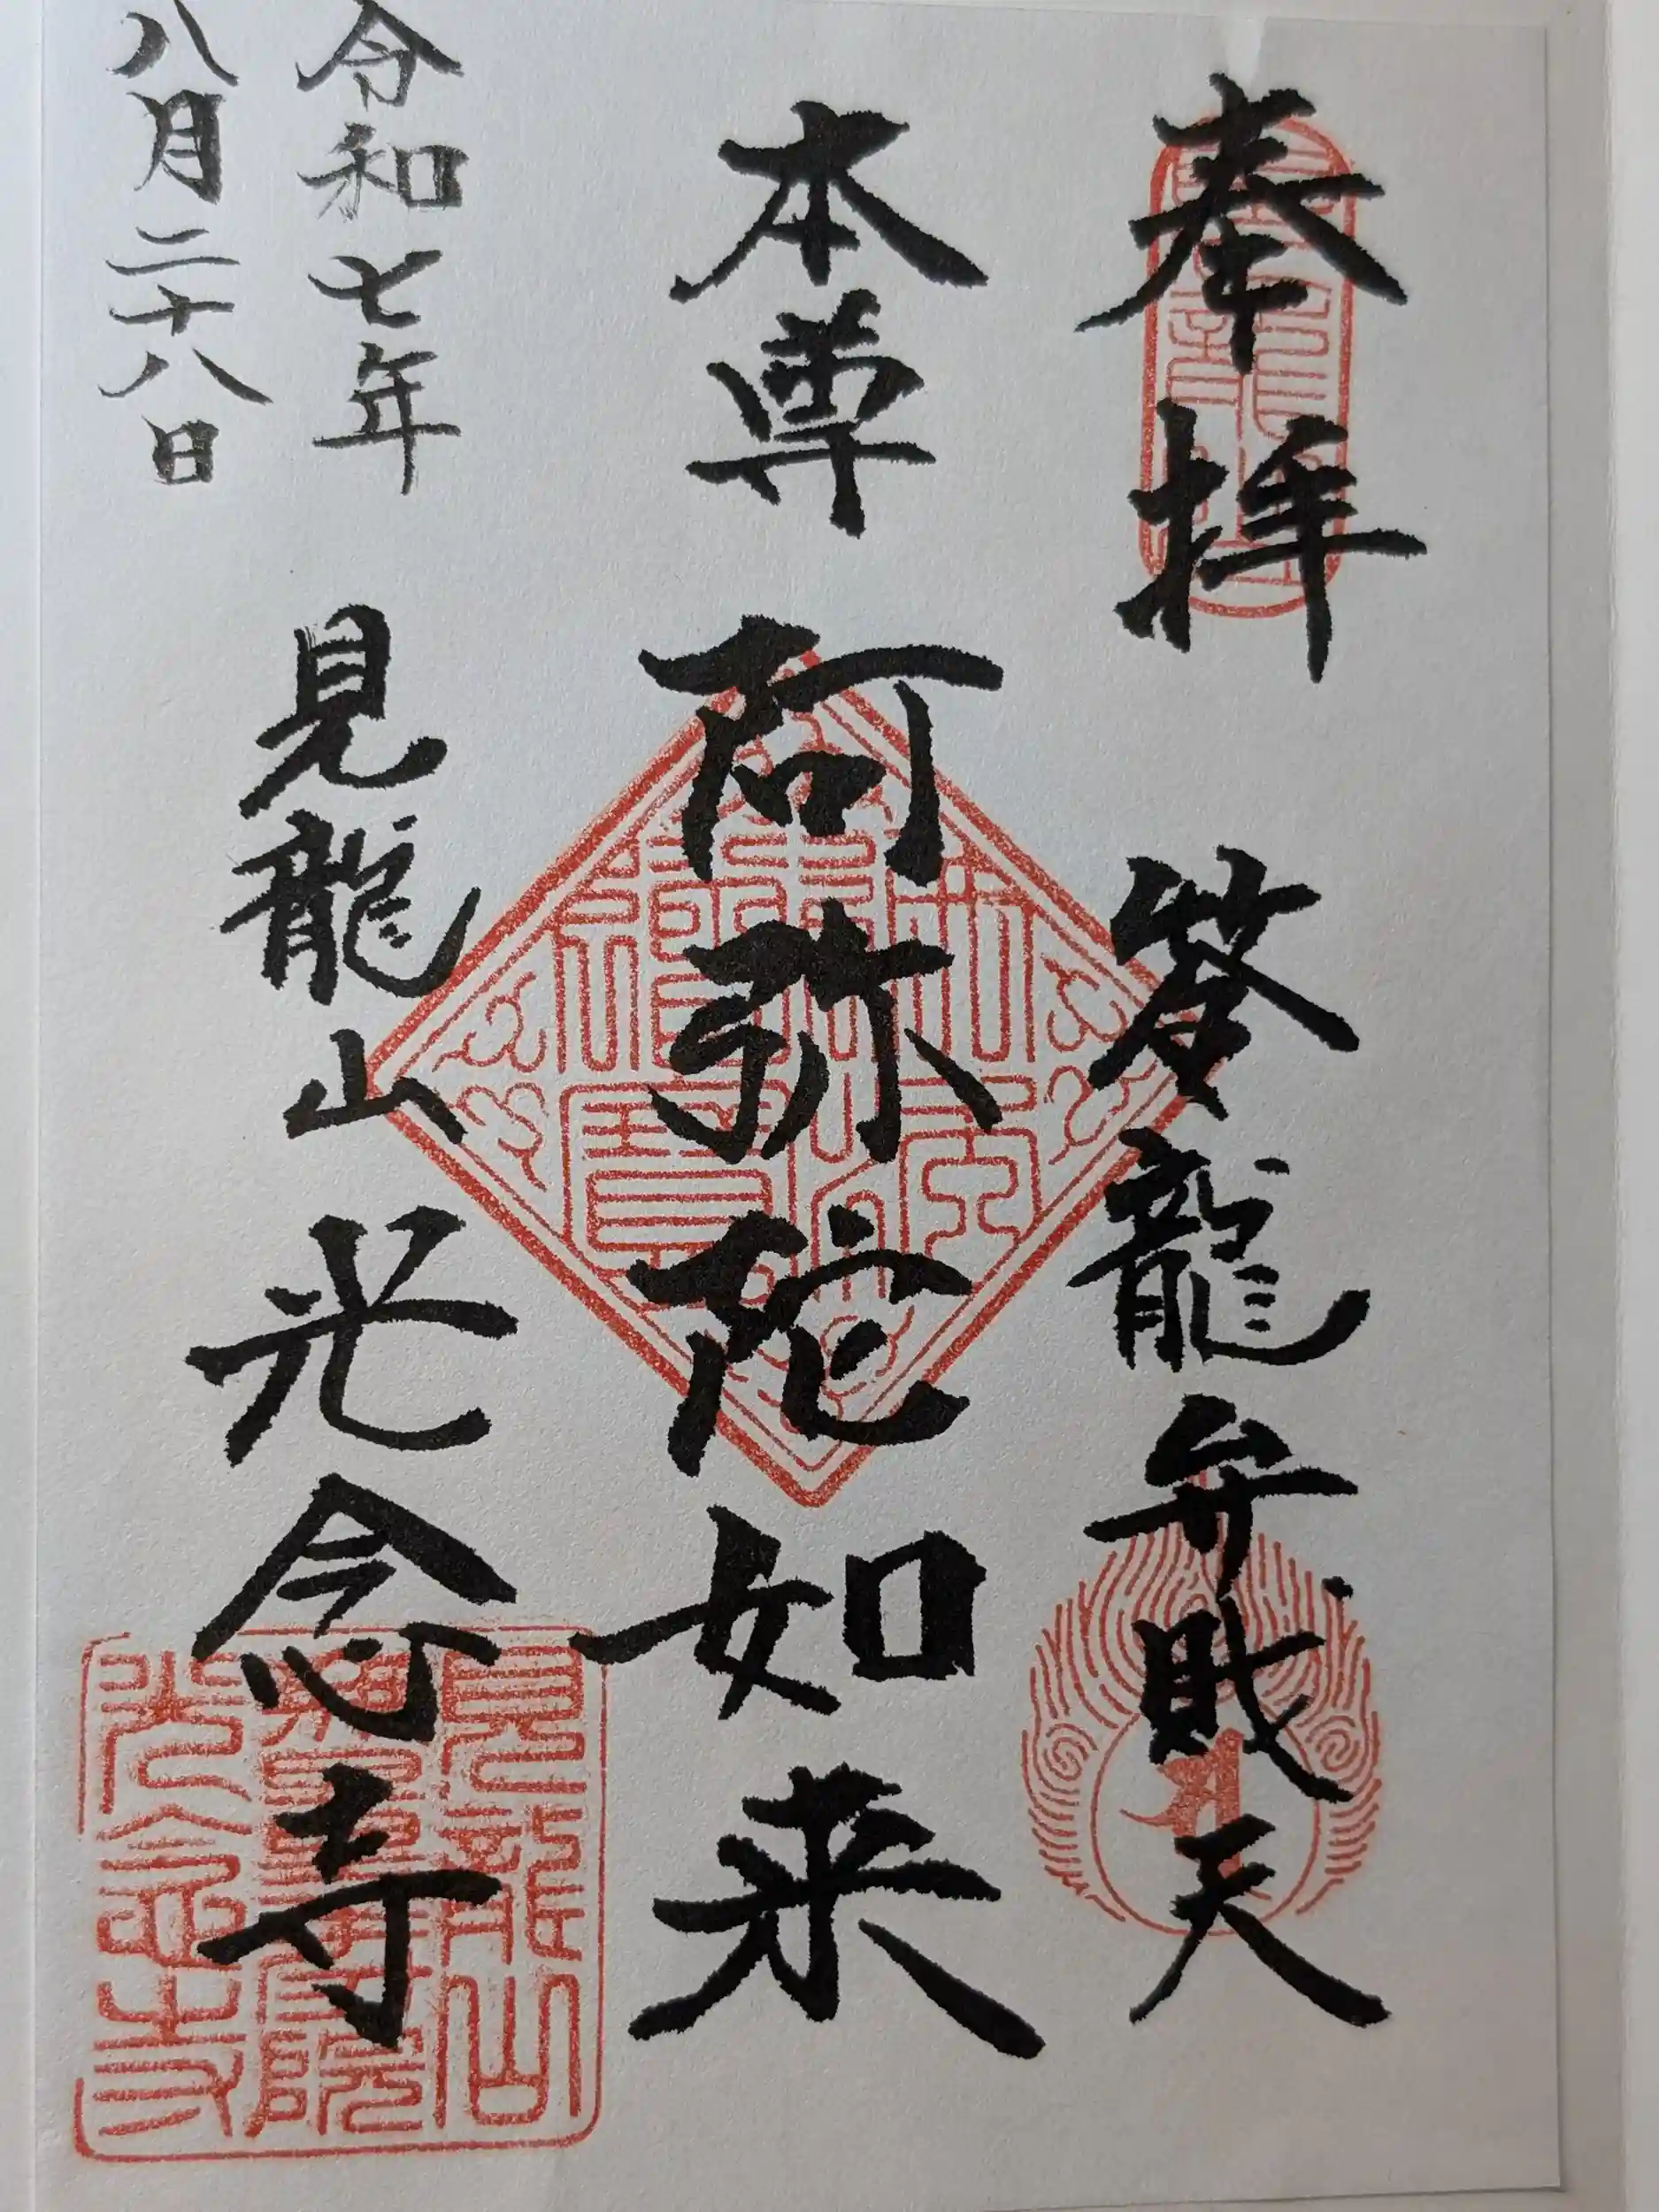 奉拝 筌龍弁財天
本尊 阿弥陀如来
令和七年
八月二十八日
見龍山 光念寺
見龍山
光念寺